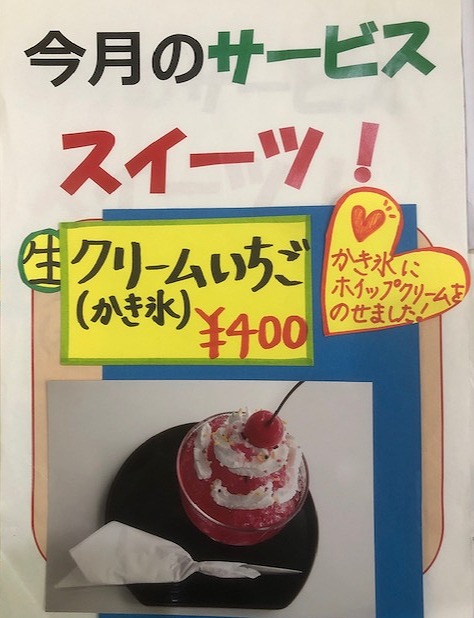 今月のサービス
スイーツ！
生クリームいちご
(かき氷)
¥400
かき氷に
ホイップクリームを
のせました！